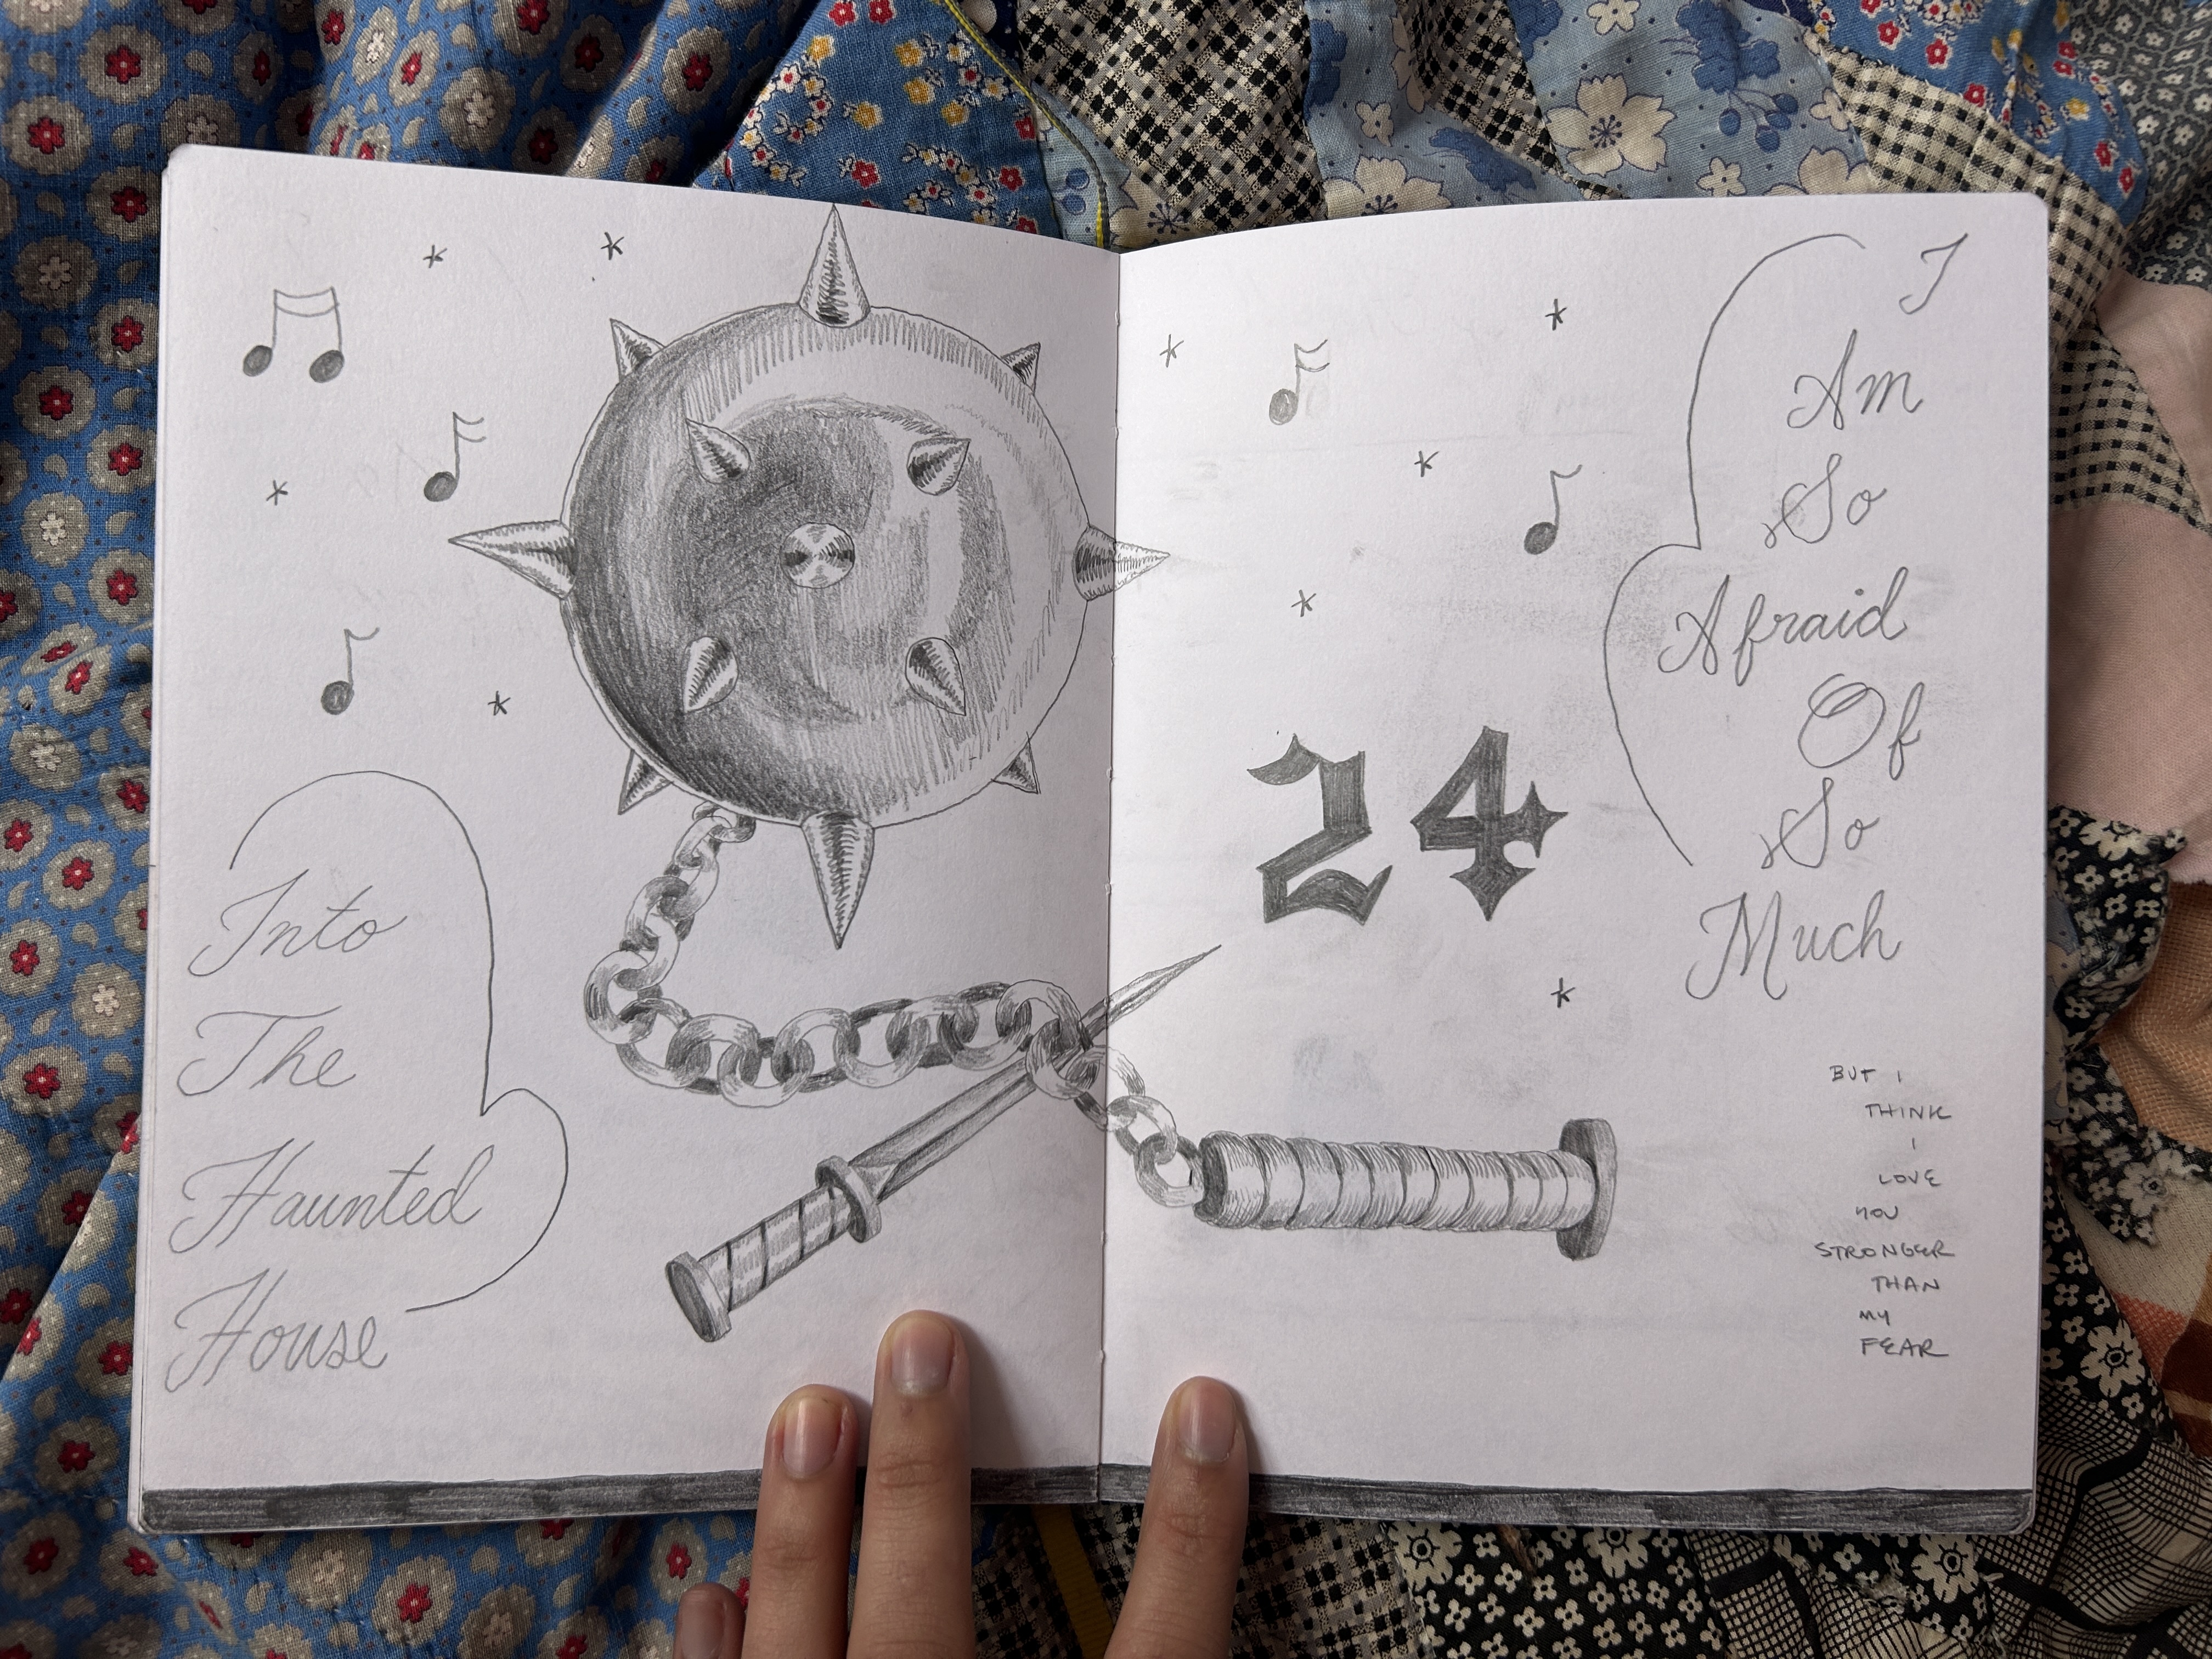 Into
The
Haunted
House
24
I
Am
So
Afraid
Of
So
Much
BUT I
THINK
I
LOVE
YOU
STRONGER
THAN
MY
FEAR